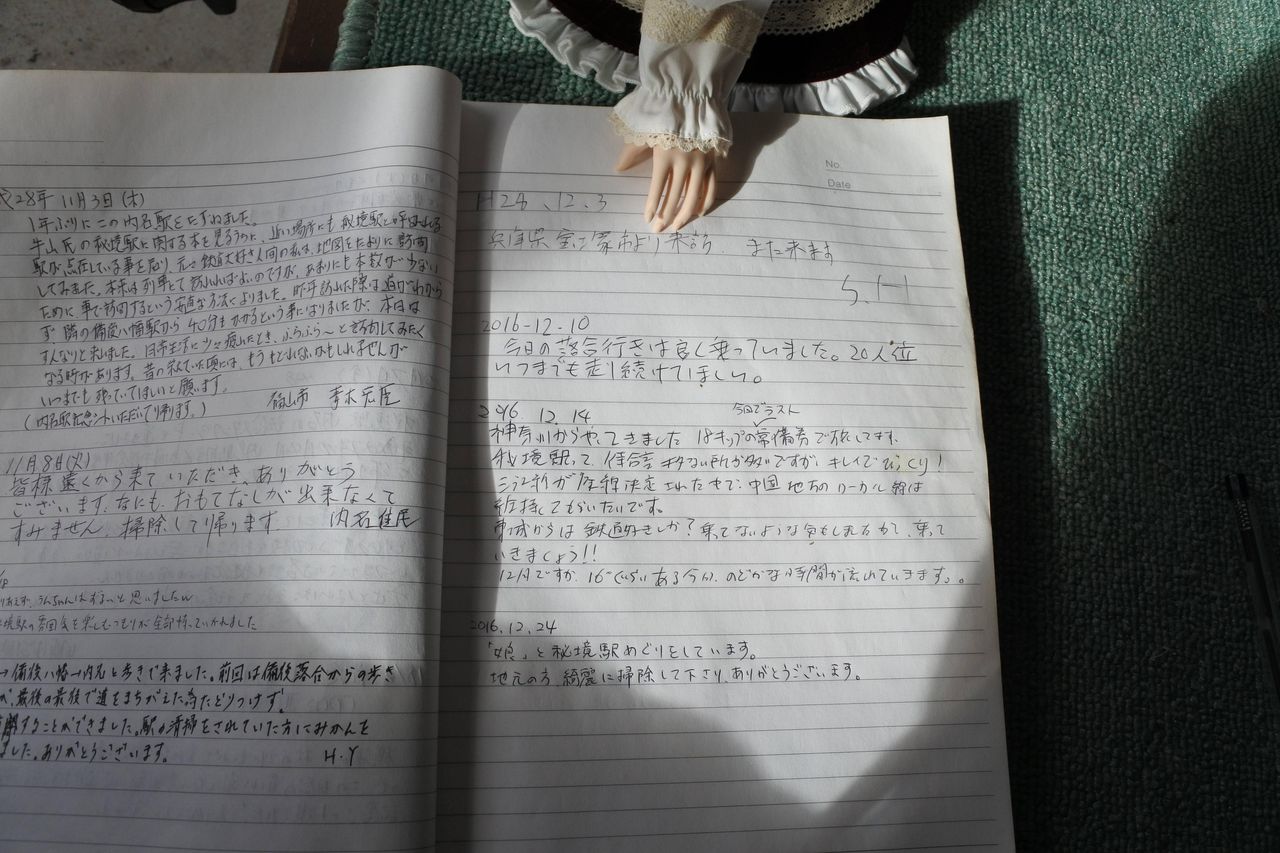 28年 11月3日(木)
1年ぶりにこの内名駅をたずねました。
牛山氏の秘境駅に関する本を見るうちに、近い場所にも秘境駅と呼ばれる
駅が点在している事を知り、元々鉄道大好き人間の私は、地図をたよりに訪問
してみました。本来は列車で訪れればよいのですが、あまりにも本数が少ない
ために車で訪問するという安直な方法によりました。昨年訪れた際は道がわから
ず隣の備後八幡駅から40分もかかるという事になりましたが、本日は
すんなりと来れました。日常生活に少々疲れたとき、ふらふら〜と訪問してみたく
なる時があります。昔の栄えていた頃には、もうもどれないかもしれませんが
いつまでも残っていてほしいと願います。
(内名駅 いただいて帰ります。) 福山市
11月8日(火)
皆様遠くから来ていただき、ありがとう
ございます。なにも、おもてなしが出来なくて
すみません、掃除して帰ります 内名住民
と思いました
駅の雰囲気を楽しむつもりが全部持っていかれました
→備後八幡→内名と歩きで来ました。前回は備後落合からの歩き
が、最後の最後で道をまちがえた為たどりつけず。
することができました。駅の清掃をされていた方にみかんを
ました。ありがとうございます。 H.Y
No.
Date
H28、12、3
兵庫県宝塚市より来訪 また来ます
S.H
2016-12.10
今日の落合行きは良く乗っていました。20人位
いつまでも走り続けてほしい。
2016. 12. 14 今回でラスト
神奈川からやってきました 18キップの常備券で旅してます。
秘境駅って、待合室 が多いですが、キレイでびっくり!
三江線が廃線決定されたので、中国地方のローカル線は
維持してもらいたいです。
からは鉄道好きしか?乗ってないような気もしますが、乗って
いきましょう!!
12月ですが、16℃くらいある今日、のどかな時間が流れていきます。。
2016.12.24
「娘」と秘境駅めぐりをしています。
地元の方、綺麗に掃除して下さりありがとうございます。